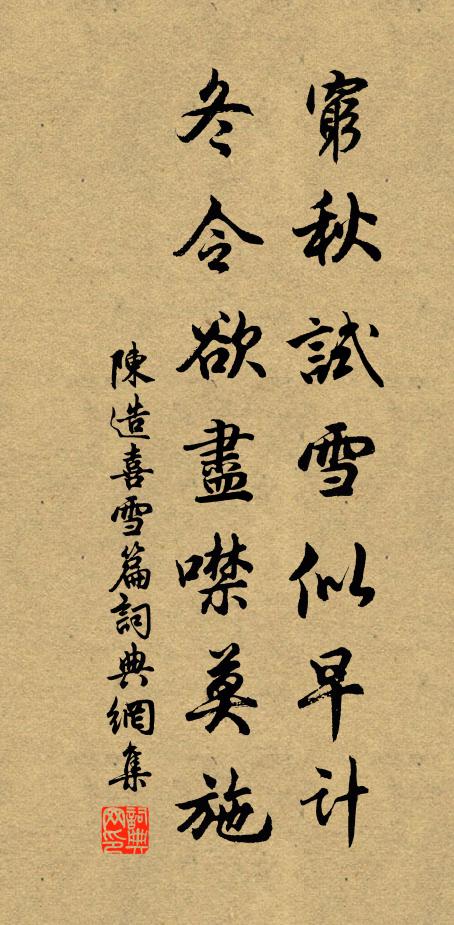 窮秋試雪似早計
冬令欲盡噤莫施
陳造喜雪篇詞典網集
詞典网印